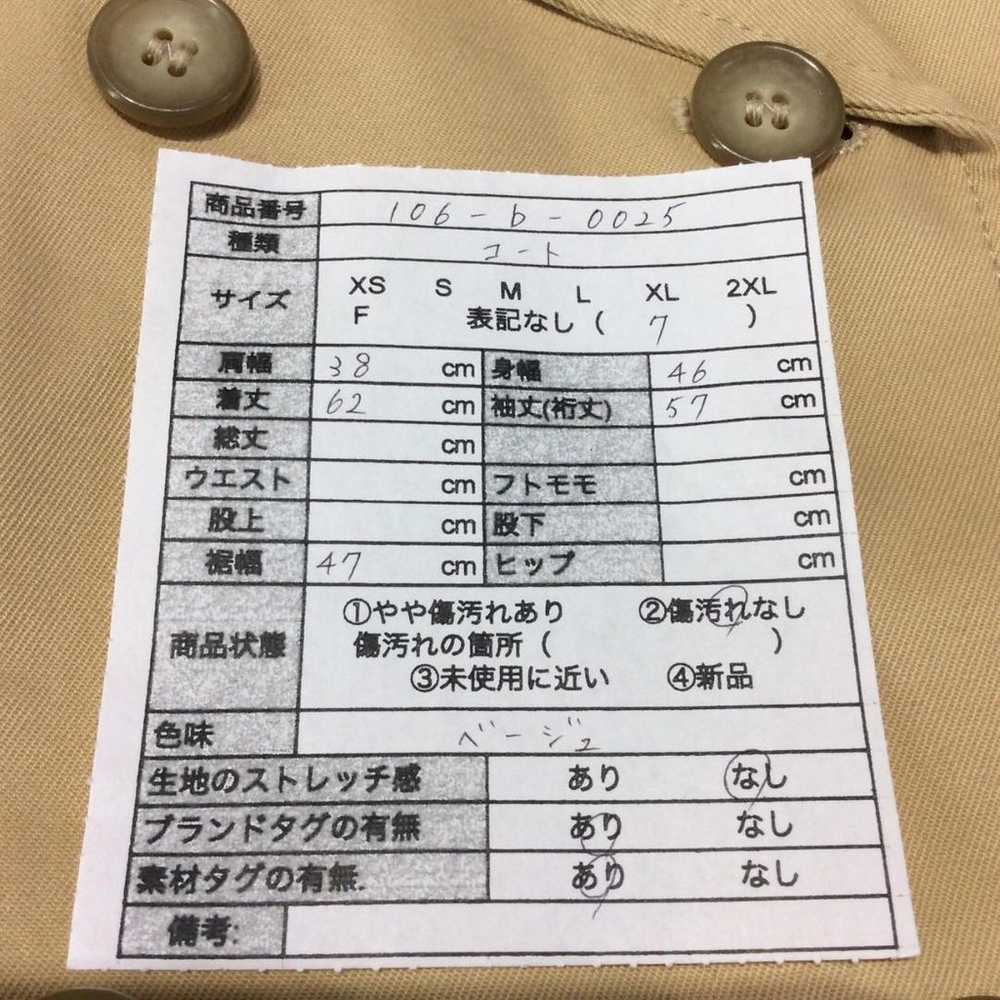 商品番号 106-b-0025
種類 コート
サイズ XS S M L XL 2XL
F 表記なし ( 7 )
肩幅 38 cm 身幅 46 cm
着丈 62 cm 袖丈(裄丈) 57 cm
総丈 cm
ウエスト cm フトモモ cm
股上 cm 股下 cm
裾幅 47 cm ヒップ cm
①やや傷汚れあり ②傷汚れなし
商品状態 傷汚れの箇所 ( )
③未使用に近い ④新品
色味 ベージュ
生地のストレッチ感 あり なし
ブランドタグの有無 あり なし
素材タグの有無. あり なし
備考: